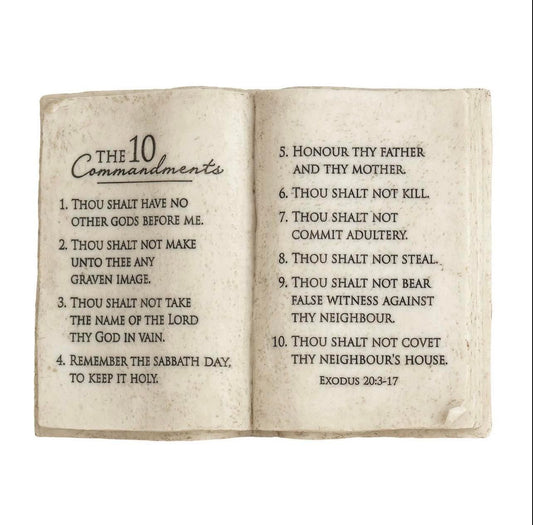 THE 10
Commandments
1. THOU SHALT HAVE NO
OTHER GODS BEFORE ME.
2. THOU SHALT NOT MAKE
UNTO THEE ANY
GRAVEN IMAGE.
3. THOU SHALT NOT TAKE
THE NAME OF THE LORD
THY GOD IN VAIN.
4. REMEMBER THE SABBATH DAY,
TO KEEP IT HOLY.
5. HONOUR THY FATHER
AND THY MOTHER.
6. THOU SHALT NOT KILL.
7. THOU SHALT NOT
COMMIT ADULTERY.
8. THOU SHALT NOT STEAL.
9. THOU SHALT NOT BEAR
FALSE WITNESS AGAINST
THY NEIGHBOUR.
10. THOU SHALT NOT COVET
THY NEIGHBOUR'S HOUSE.
EXODUS 20:3-17